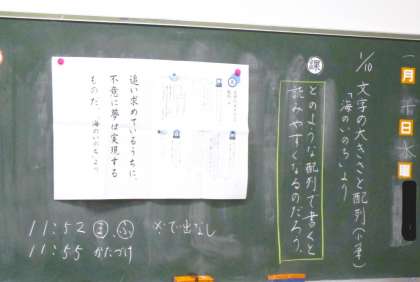 月
日
水
曜
1/10 文字の大きさと配列(小筆)
「海のいのち」より
課
どのような配列で書くと
読みやすくなるのだろう。
追い求めているうちに、
不意に夢は実現する
ものだ。 海のいのちより
11:52 ま、ふ ※で出なし
11:55 かたづけ